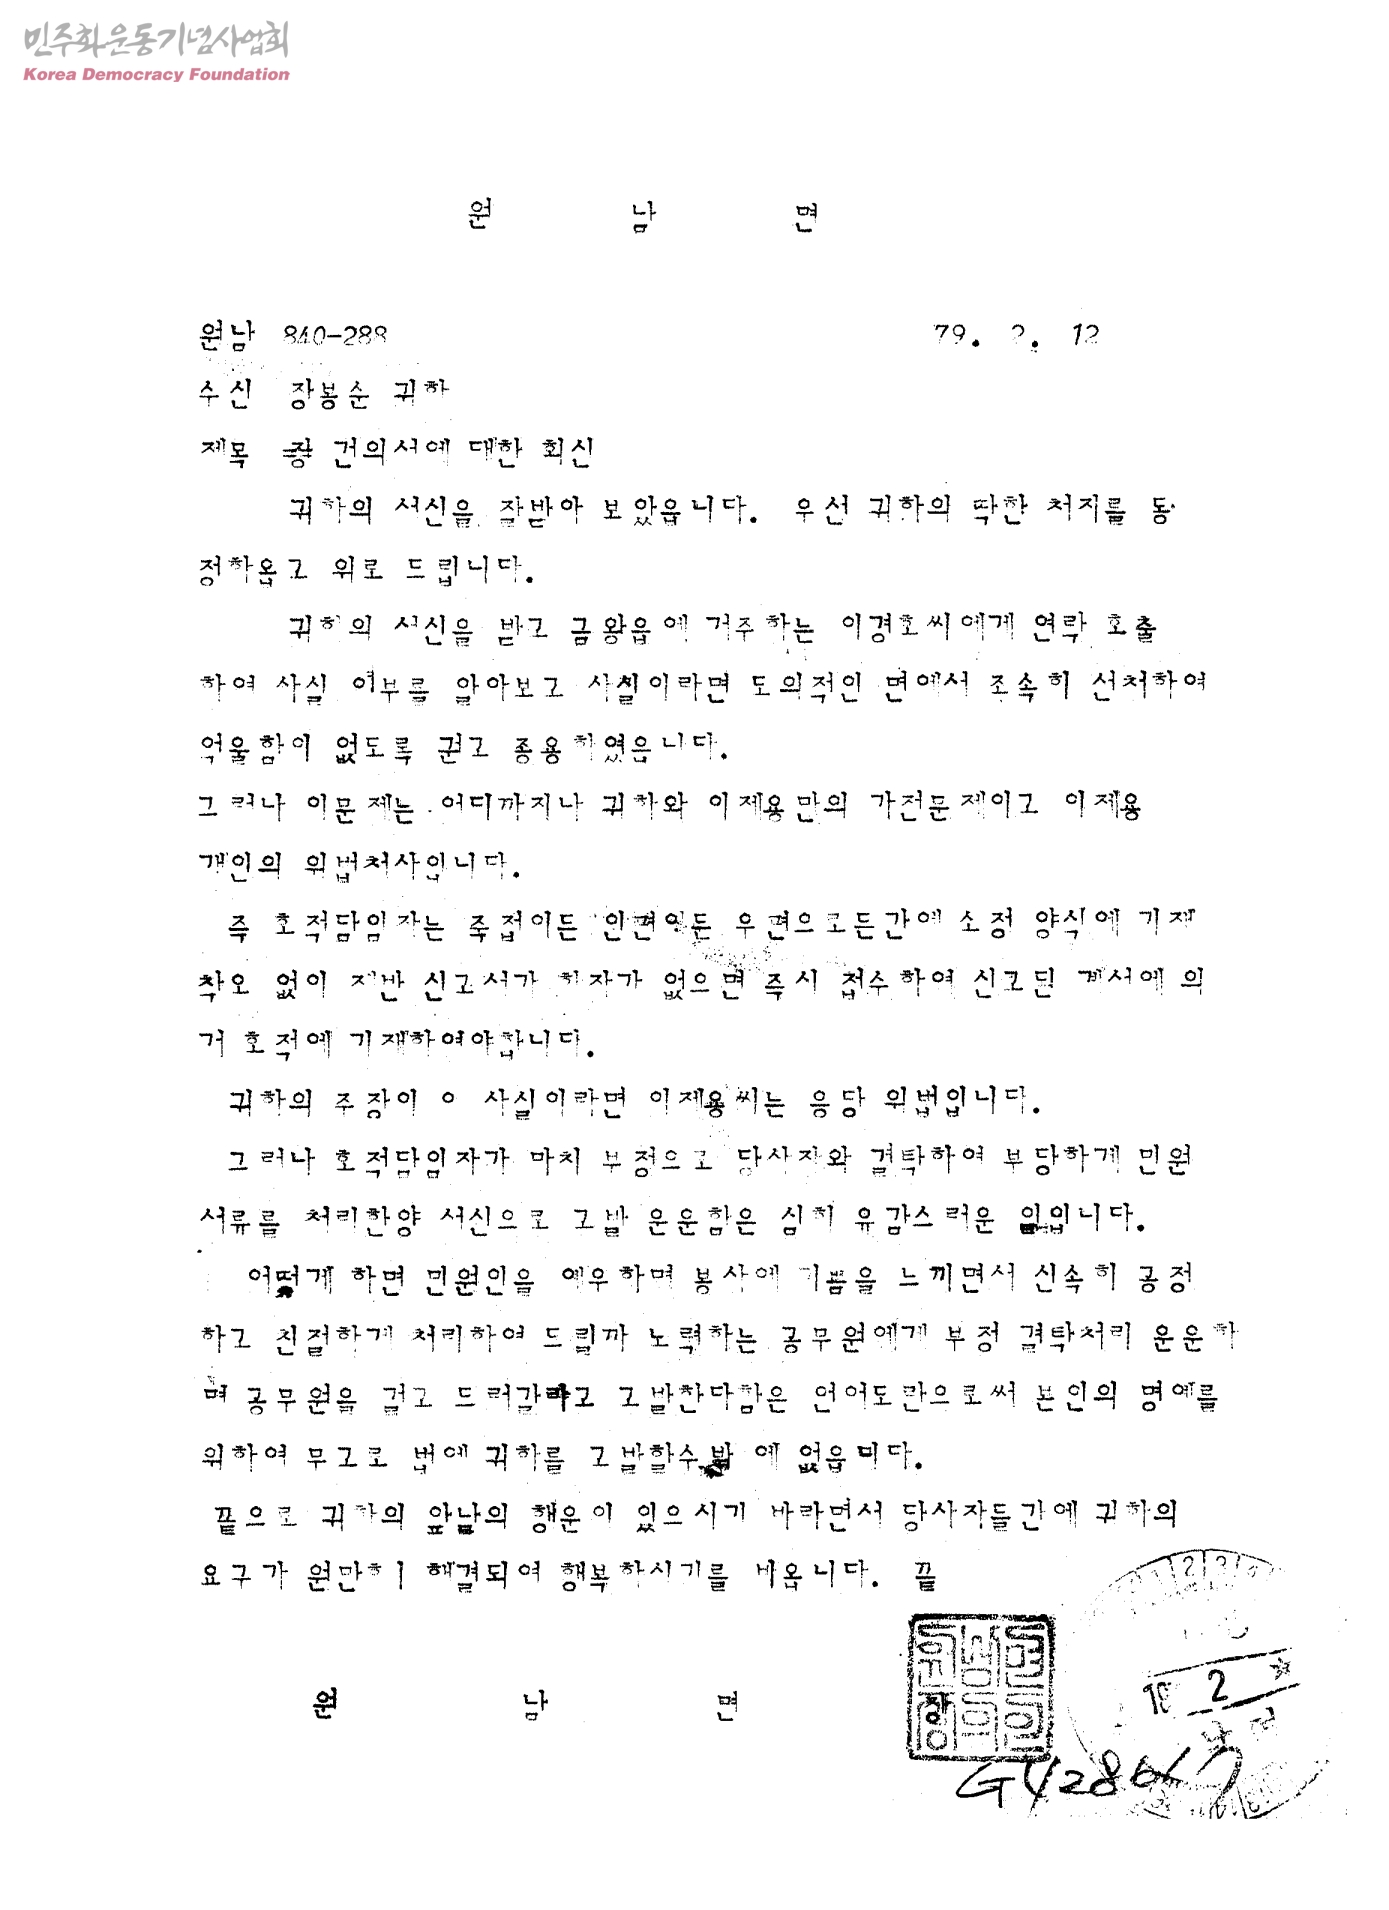 민주화운동기념사업회
Korea Democracy Foundation
원 남 면
원남 840-288 79. 2. 12
수신 장봉순 귀하
제목 건의서에 대한 회신
귀하의 서신을 잘받아 보았읍니다. 우선 귀하의 딱한 처지를 동
정하옵고 위로 드립니다.
귀하의 서신을 받고 금왕읍에 거주하는 이경호씨에게 연락 호출
하여 사실 여부를 알아보고 사실이라면 도의적인 면에서 조속히 선처하여
억울함이 없도록 권고 종용하였읍니다.
그러나 이문제는 어디까지나 귀하와 이제용만의 가전문제이고 이제용
개인의 위법처사입니다.
즉 호적담임자는 죽접이든 인편이든 우편으로든간에 소정 양식에 기재
착오 없이 제반 신고서가 하자가 없으면 즉시 접수하여 신고된 계서에 의
거 호적에 기재하여야합니다.
귀하의 주장이 ㅇ 사실이라면 이제용씨는 응당 위법입니다.
그러나 호적담임자가 마치 부정으로 당사자와 결탁하여 부당하게 민원
서류를 처리한양 서신으로 고발 운운함은 심히 유감스러운 일입니다.
어떻게 하면 민원인을 예우하며 봉사에 기쁨을 느끼면서 신속히 공정
하고 친절하게 처리하여 드릴까 노력하는 공무원에게 부정 결탁처리 운운하
며 공무원을 걸고 드러갈라고 고발한다함은 언어도만으로써 본인의 명예를
위하여 무고로 법에 귀하를 고발할수밖 에 없읍니다.
끝으로 귀하의 앞날의 행운이 있으시기 바라면서 당사자들간에 귀하의
요구가 원만히 해결되여 행복하시기를 비옵니다. 끝
원 남 면 장